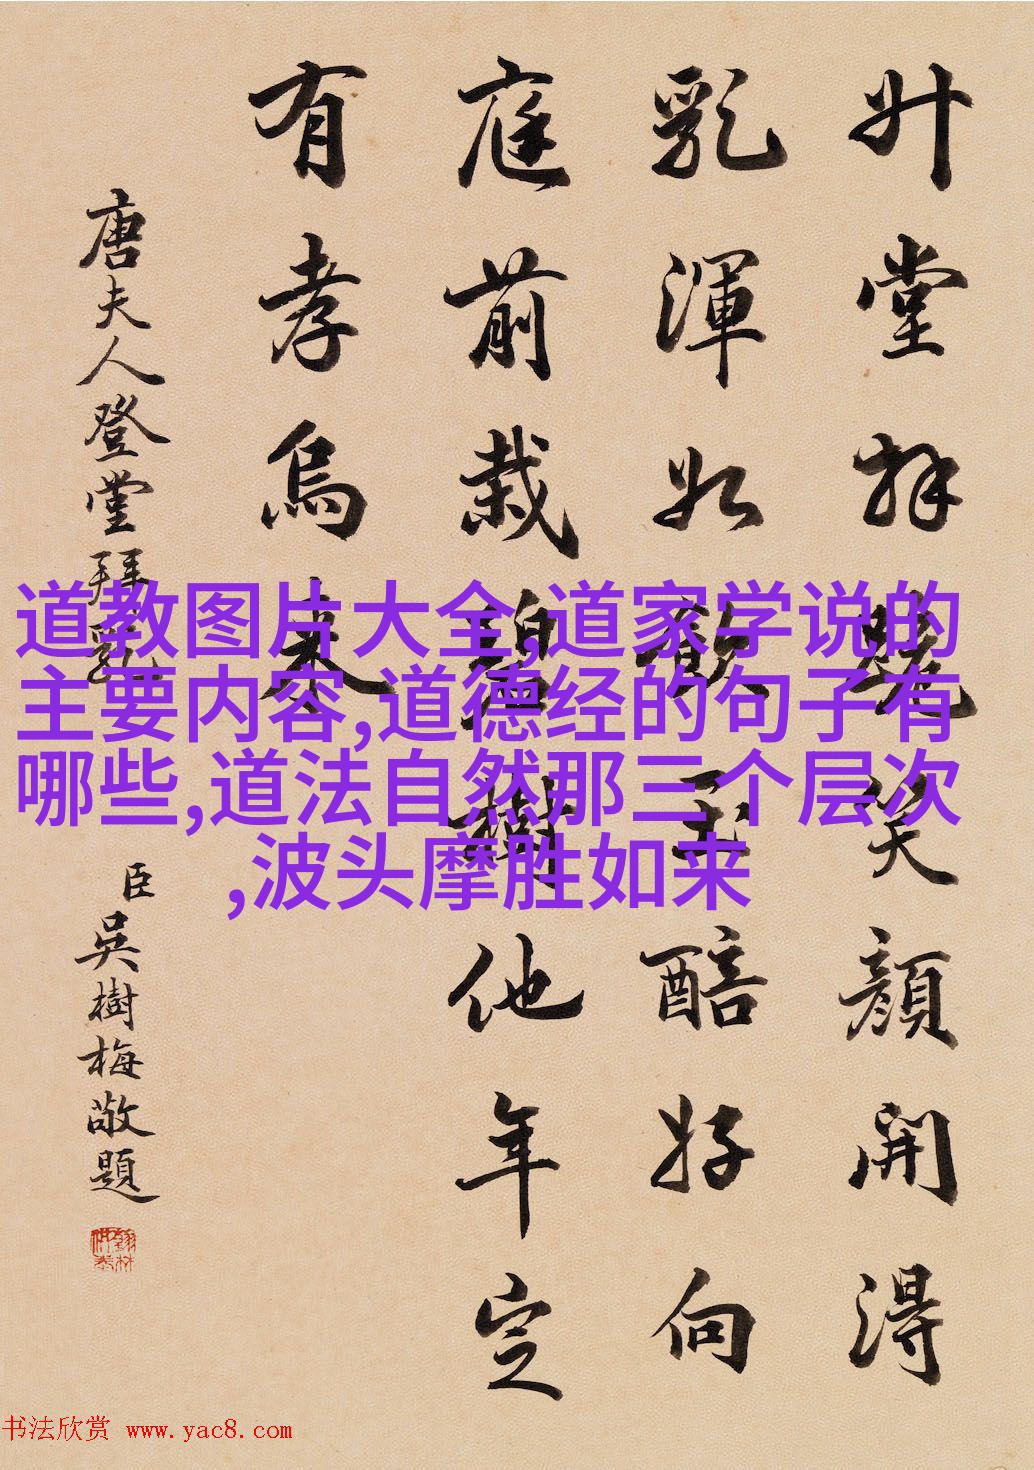 升堂拜笑顏開得
乳渾如飲玉醅好向
庭前栽碧樹他年定
有孝烏來
唐夫人登堂拜乳
臣吳樹梅敬題
道教图片大全,道家学说的
主要内容,道德经的句子有
哪些,道法自然那三个层次
,波头摩胜如来
书法欣赏 www.yac8.com